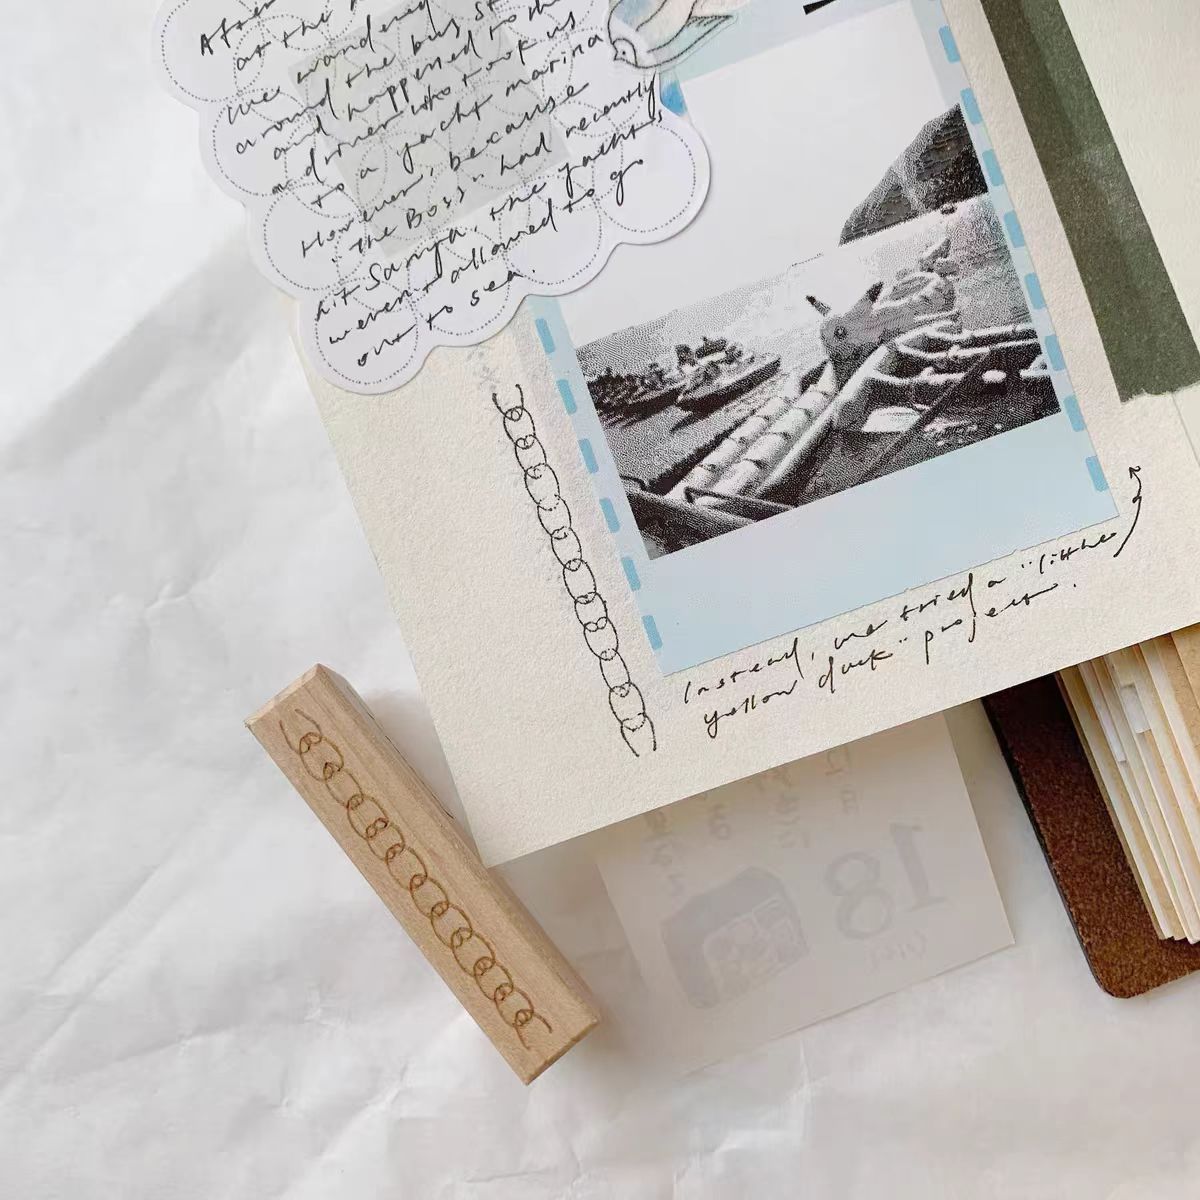 After
at the
we wandered
around the bus st
and happened to m
a driver who took us
to a yacht marina
However, because
"The Boss" had recently
hit Sanya, the yachts
weren't allowed to go
out to sea.
Instead, we tried a "little
yellow duck" project.
18